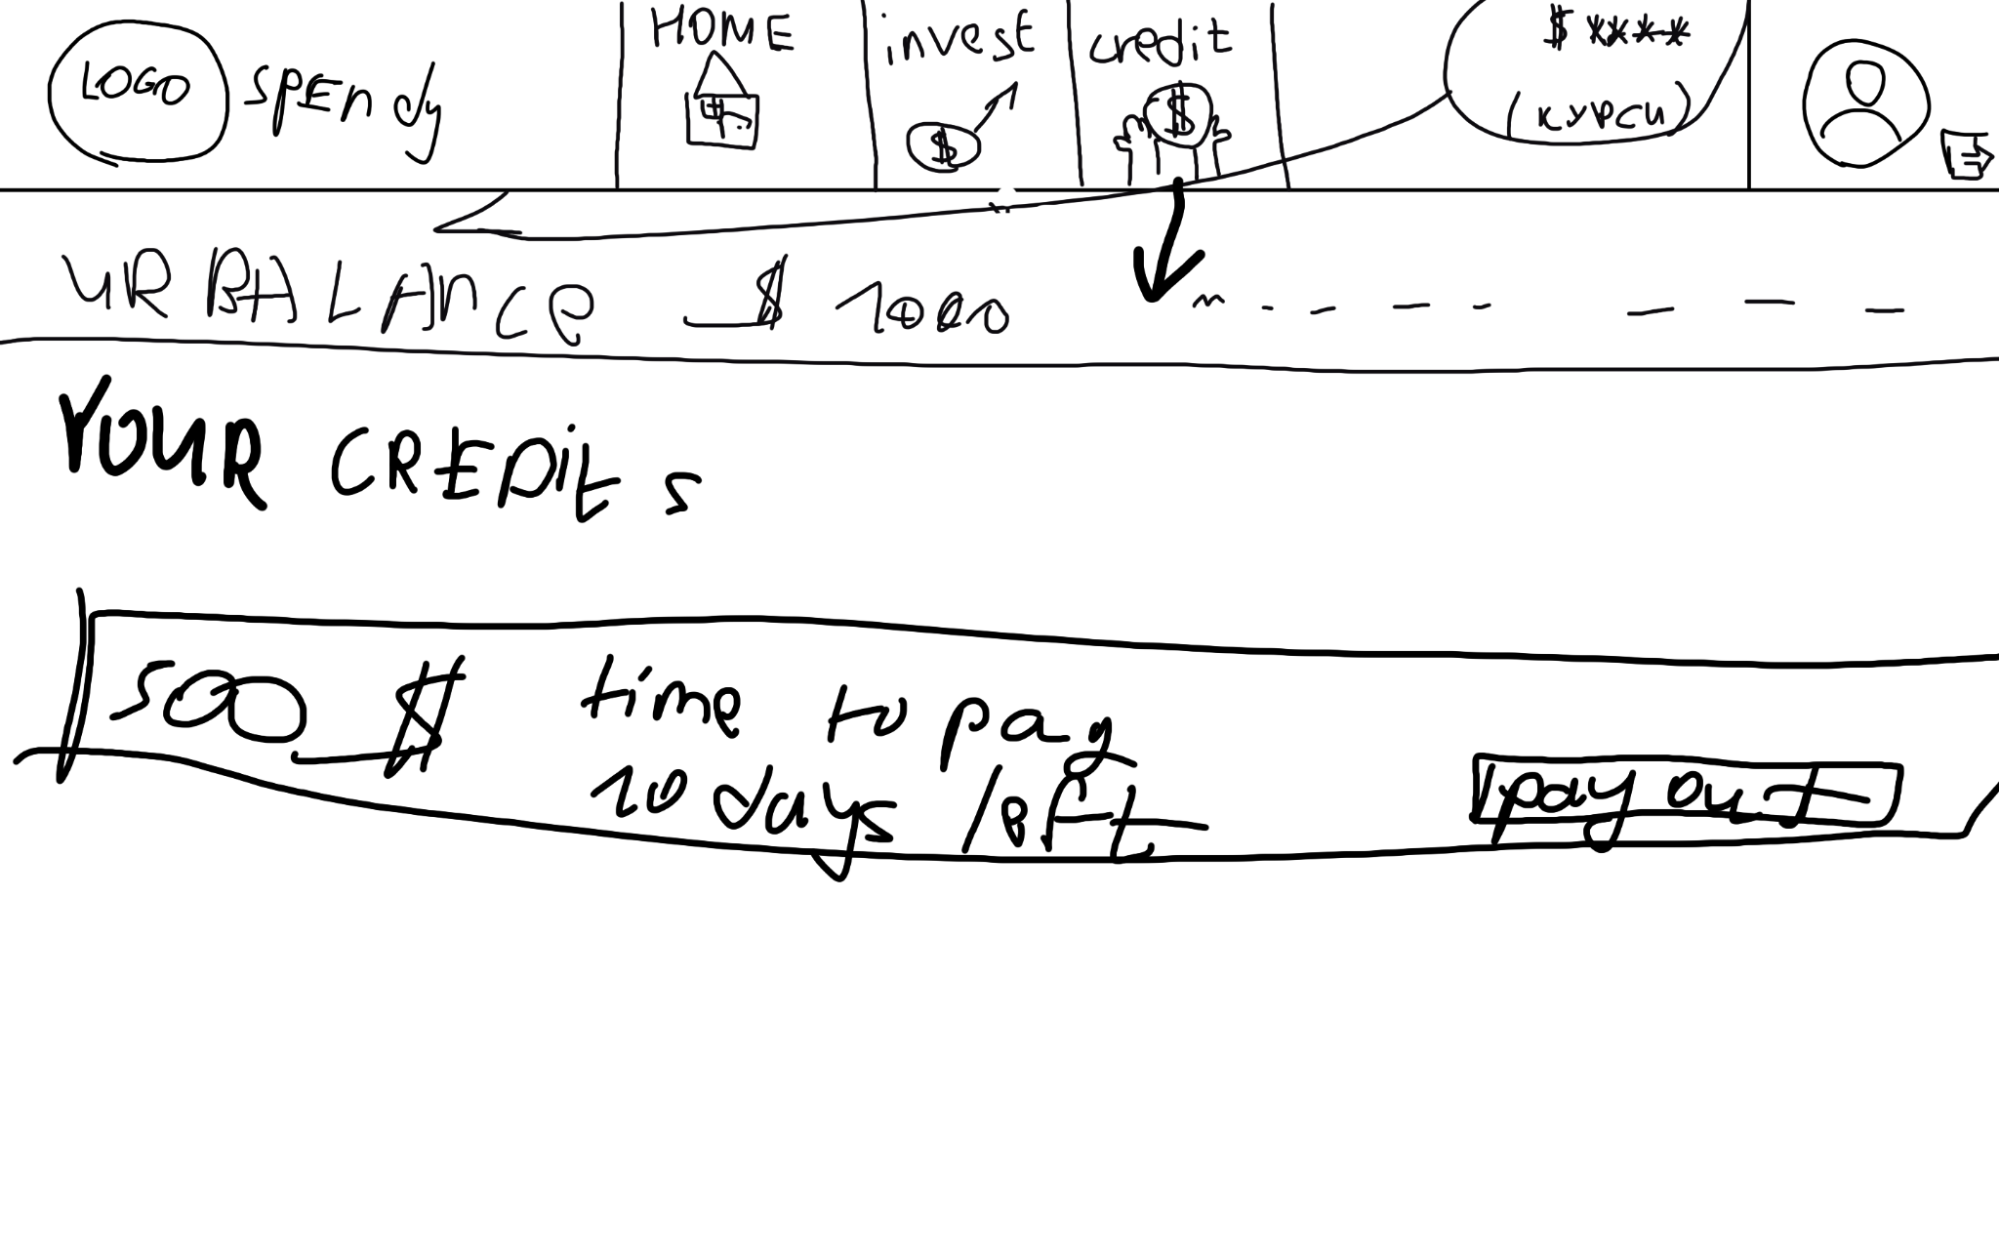 LOGO spendy
HOME
invest
credit
$ ****
(курси)
UR BALANCE $ 1000
YOUR CREDITS
500 $
time to pay
10 days left
pay out